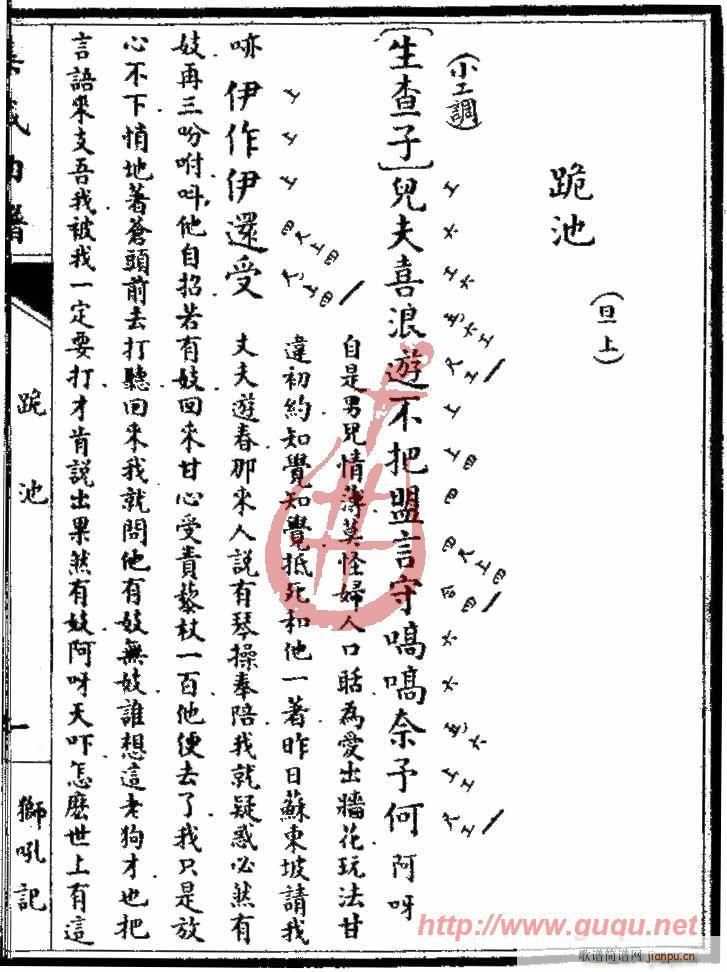 跪池
（旦上）
（小工調）
［生查子］兒夫喜浪遊不把盟言守嗃嗃奈予何 阿呀
自是男兒情薄莫怪婦人口聒為愛出牆花玩法甘
違初約知覺知覺抵死和他一著昨日蘇東坡請我
丈夫遊春那來人說有琴操奉陪我就疑惑必然有
哧 伊作伊還受
妓再三吩咐叫他自招若有妓回來甘心受責藜杖一百他便去了我只是放
心不下悄地著蒼頭前去打聽回來我就問他有妓無妓誰想這老狗才也把
言語來支吾我被我一定要打才肯說出果然有妓阿呀天吓怎麼世上有這
跪池
一
獅吼記
http://www.guqu.net
歌谱简谱网 jianpu.cn